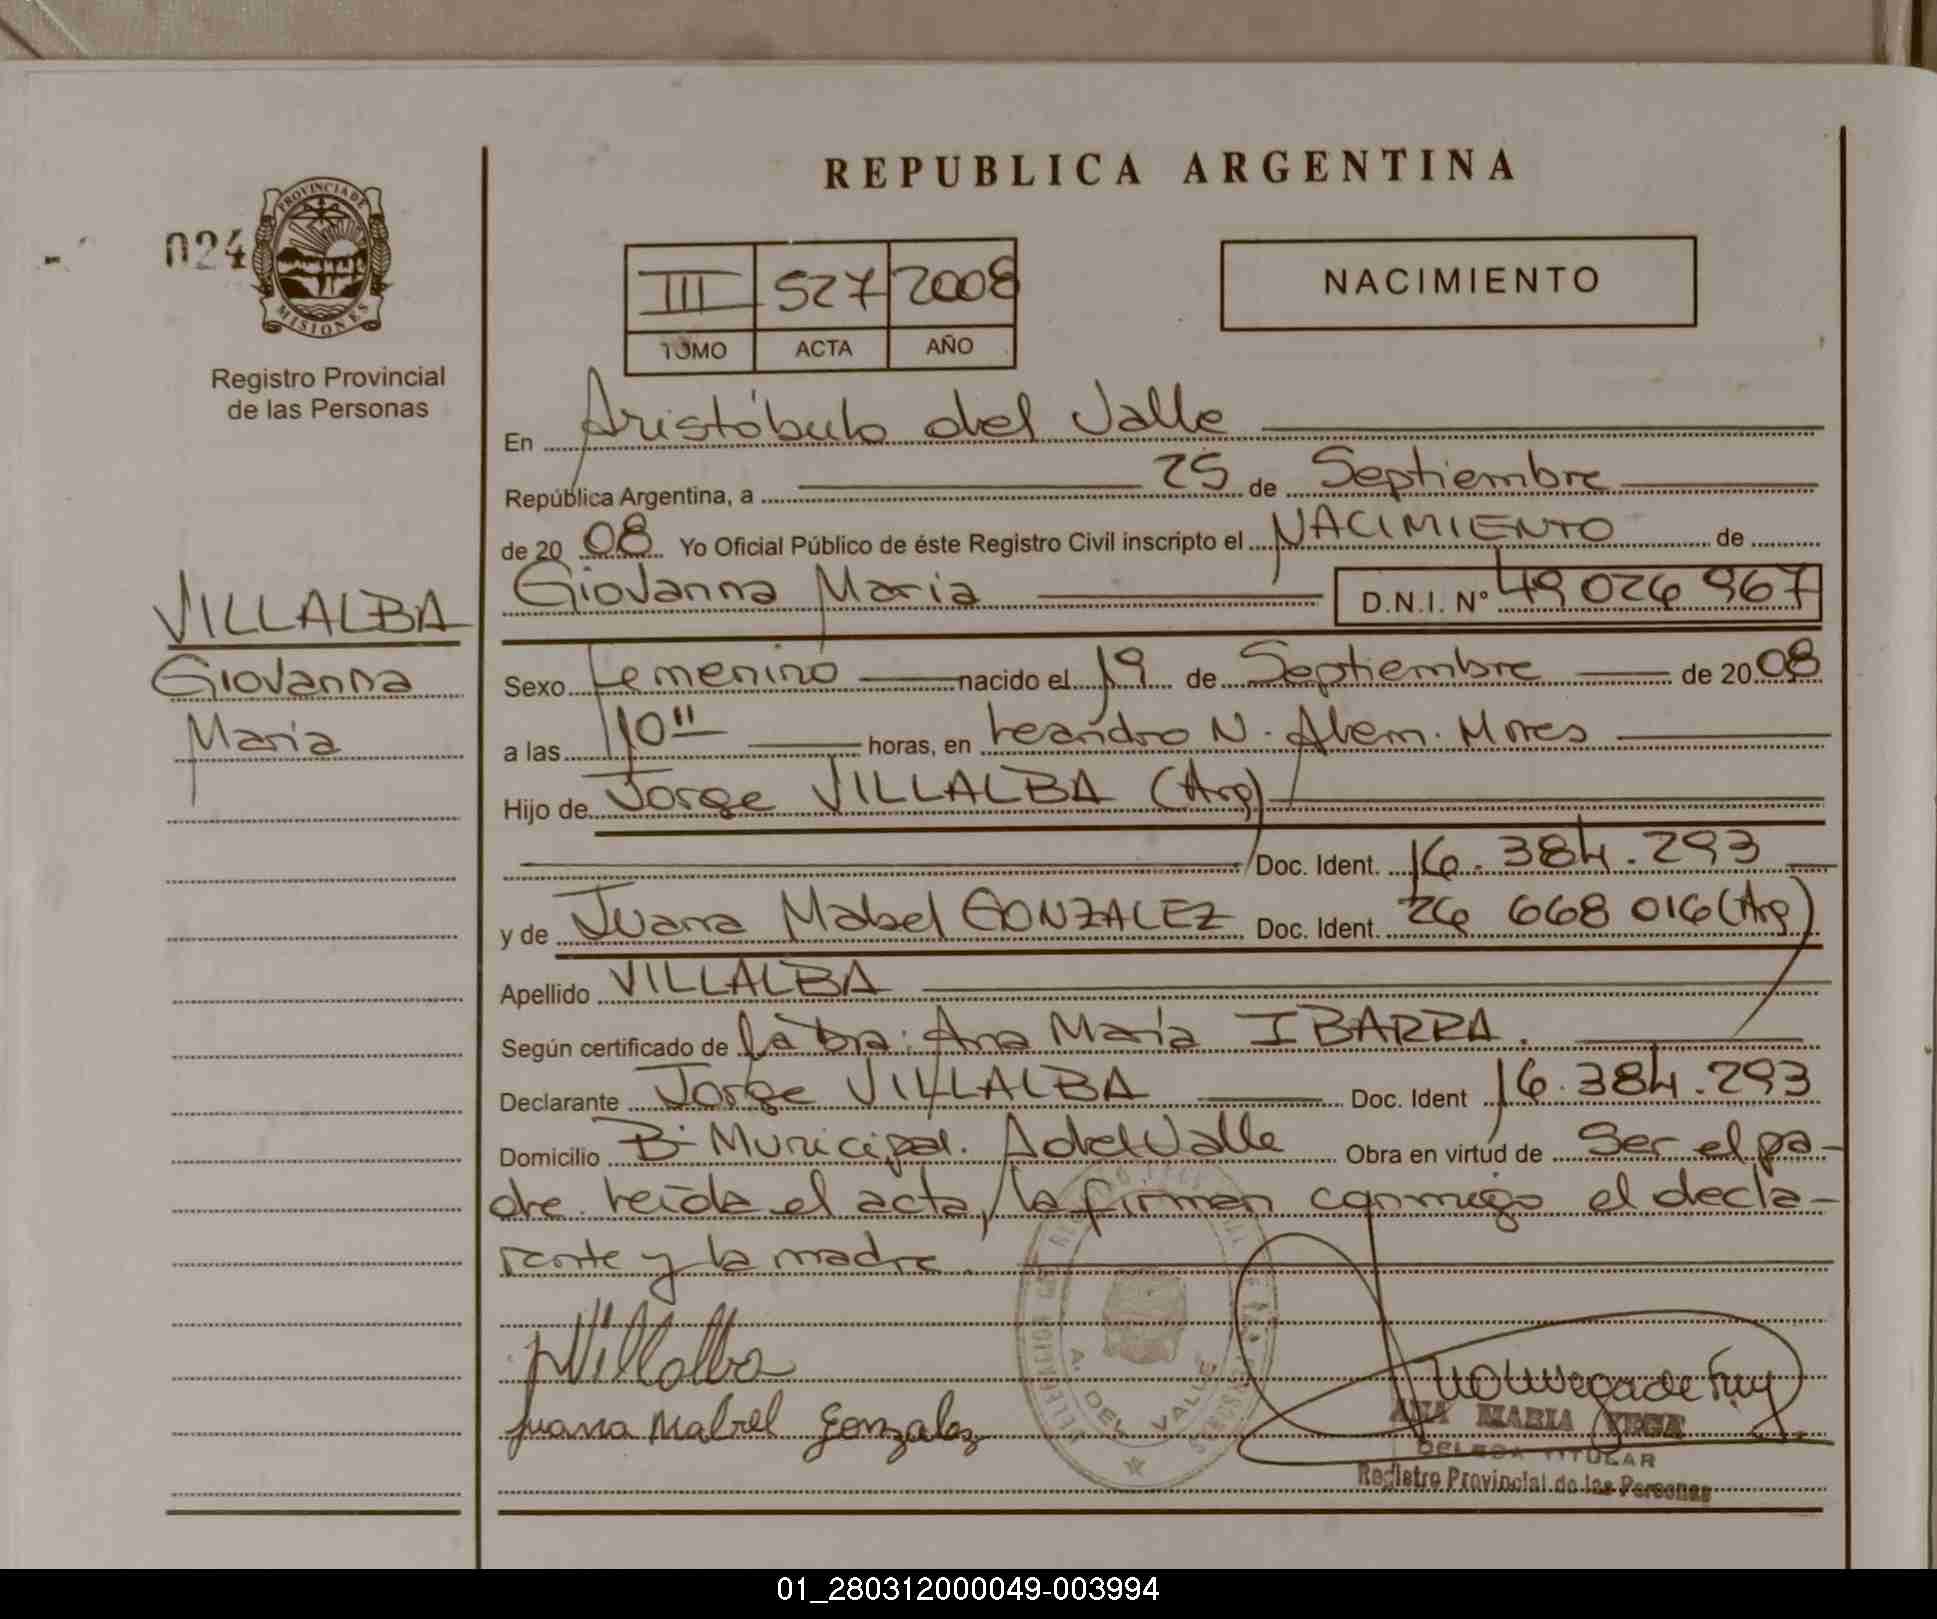 REPUBLICA ARGENTINA
024
PROVINCIA DE
MISIONES
Registro Provincial
de las Personas
III 527 2008
TOMO ACTA AÑO
NACIMIENTO
En Aristóbulo del Valle
República Argentina, a 25 de Septiembre
de 2008 Yo Oficial Público de éste Registro Civil inscripto el NACIMIENTO de
Giovanna Maria D.N.I. N° 49 026 967
VILLALBA
Giovanna
Maria
Sexo Femenino nacido el 19 de Septiembre de 2008
a las 10 horas, en Leandro N. Alem. Mnes
Hijo de Jorge VILLALBA (Arg)
Doc. Ident. 16.384.293
y de Juana Mabel GONZALEZ Doc. Ident. 26 668 016 (Arg)
Apellido VILLALBA
Según certificado de la Dra. Ana María IBARRA.
Declarante Jorge VILLALBA Doc. Ident 16.384.293
Domicilio B° Municipal. A del Valle Obra en virtud de Ser el pa-
dre. Leída el acta, la firman conmigo el decla-
rante y la madre.
Villalba
Juana Mabel Gonzalez
A. DEL VALLE
ANA MARIA VEGA
TITULAR
Registro Provincial de las Personas
01_280312000049-003994